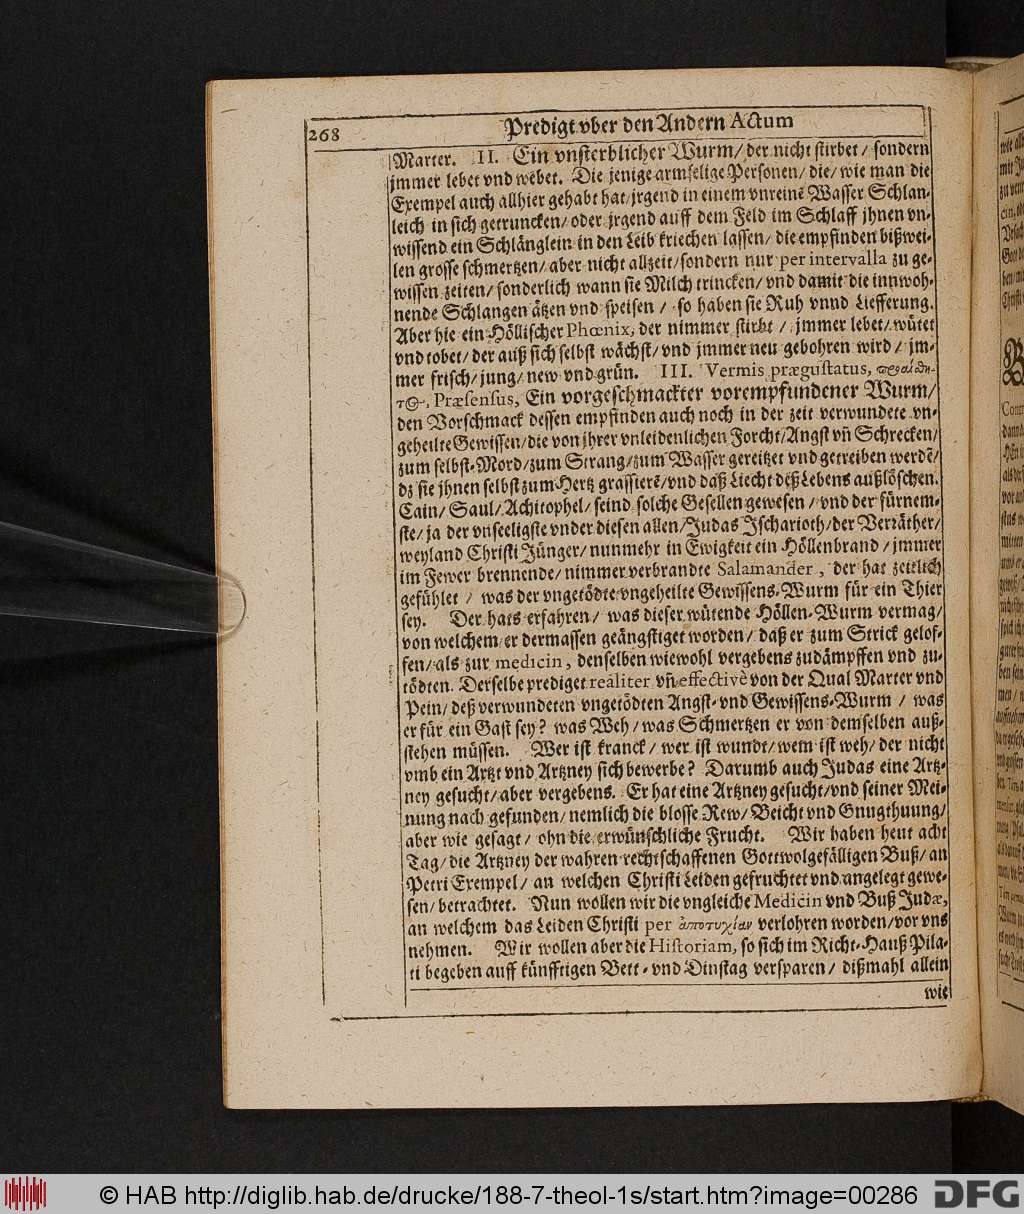 268
Predigt vber den Andern Actum
Marter. II. Ein vnsterblicher Wurm/ der nicht stirbet/ sondern
jmmer lebet vnd webet. Die jenige armselige Personen/ die/ wie man die
Exempel auch allhier gehabt hat/ jrgend in einem vnreinē Wasser Schlan-
leich in sich getruncken/ oder jrgend auff dem Feld im Schlaff jhnen vn-
wissend ein Schlänglein in den Leib kriechen lassen/ die empfinden bißwei-
len grosse schmertzen/ aber nicht allzeit/ sondern nur per intervalla zu ge-
wissen zeiten/ sonderlich wann sie Milch trincken/ vnd damit die innwoh-
nende Schlangen ätzen vnd speisen/ so haben sie Ruh vnnd Liefferung.
Aber hie ein Höllischer Phœnix, der nimmer stirbt/ jmmer lebet/ wütet
vnd tobet/ der auß sich selbst wächst/ vnd jmmer neu gebohren wird/ jm-
mer frisch/ jung/ new vnd grün. III. Vermis prægustatus,
Præsensus, Ein vorgeschmackter vorempfundener Wurm/
den Vorschmack dessen empfinden auch noch in der zeit verwundete vn-
geheilte Gewissen/ die von jhrer vnleidenlichen Forcht/ Angst vñ Schrecken/
zum selbst-Mord/ zum Strang/ zum Wasser gereitzet vnd getreiben werdē/
dz sie jhnen selbst zum Hertz grassierē/ vnd daß Liecht deß Lebens außlöschen.
Cain/ Saul/ Achitophel/ seind solche Gesellen gewesen/ vnd der fürnem-
ste/ ja der vnseeligste vnder diesen allen/ Judas Ischarioth/ der Verräther/
weyland Christi Jünger/ nunmehr in Ewigkeit ein Höllenbrand/ jmmer
im Fewer brennende/ nimmer verbrandte Salamander, der hat zeitlich
gefühlet/ was der vngetödte vngeheilte Gewissens-Wurm für ein Thier
sey. Der hats erfahren/ was dieser wütende Höllen-Wurm vermag/
von welchem er dermassen geängstiget worden/ daß er zum Strick gelof-
fen/ als zur medicin, denselben wiewohl vergebens zudämpffen vnd zu-
tödten. Derselbe prediget realiter vñ effectivè von der Qual Marter vnd
Pein/ deß verwundeten vngetödten Angst- vnd Gewissens-Wurm/ was
er für ein Gast sey? was Weh/ was Schmertzen er von demselben auß-
stehen müssen. Wer ist kranck/ wer ist wundt/ wem ist weh/ der nicht
vmb ein Artzt vnd Artzney sich bewerbe? Darumb auch Judas eine Artz-
ney gesucht/ aber vergebens. Er hat eine Artzney gesucht/ vnd seiner Mei-
nung nach gefunden/ nemlich die blosse Rew/ Beicht vnd Gnugthuung/
aber wie gesagt/ ohn die erwünschliche Frucht. Wir haben heut acht
Tag/ die Artzney der wahren rechtschaffenen Gottwolgefälligen Buß/ an
Petri Exempel/ an welchen Christi Leiden gefruchtet vnd angelegt gewe-
sen/ betrachtet. Nun wollen wir die vngleiche Medicin vnd Buß Judæ,
an welchem das Leiden Christi per ἀποτυχίαν verlohren worden/ vor vns
nehmen. Wir wollen aber die Historiam, so sich im Richt-Hauß Pila-
ti begeben auff künfftigen Bett- vnd Dinstag versparen/ dißmahl allein
wie
© HAB http://diglib.hab.de/drucke/188-7-theol-1s/start.htm?image=00286
DFG